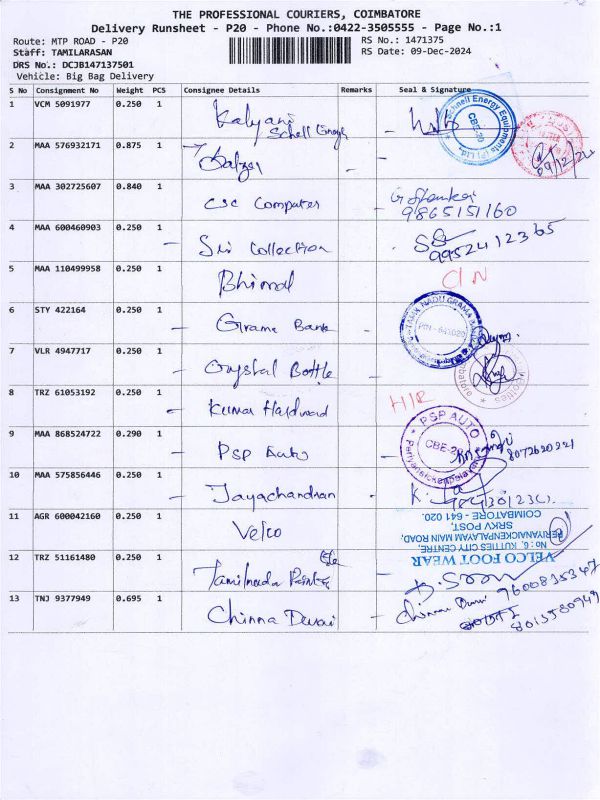 THE PROFESSIONAL COURIERS, COIMBATORE
Delivery Runsheet - P20 - Phone No.:0422-3505555 - Page No.:1
Route: MTP ROAD - P20
RS No.: 1471375
Staff: TAMILARASAN
RS Date: 09-Dec-2024
DRS No.: DCJB147137501
Vehicle: Big Bag Delivery
S No Consignment No Weight PCS Consignee Details Remarks Seal & Signature
1 VCM 5091977 0.250 1 Kalyani
Schnell Energy Equipments (P) Ltd CBE-20
2 MAA 576932171 0.875 1
09/12/24
3 MAA 302725607 0.840 1 CSC Computer
9865151160
4 MAA 600460903 0.250 1 Sri Collection
9952412365
5 MAA 110499958 0.250 1 Bhimal CIN
6 STY 422164 0.250 1 Grama Bank
TAMIL NADU GRAMA BANK
PIN - 641020
7 VLR 4947717 0.250 1 Crystal Bottle
8 TRZ 61053192 0.250 1 Kumar Hardward H/R
9 MAA 868524722 0.290 1 PSP Auto
PSP AUTO CBE-20 Periyanaickenpalayam
10 MAA 575856446 0.250 1 Jayachandran
11 AGR 600042160 0.250 1 Velco
VELCO FOOT WEAR
No: 6, KUTTIES CITY CENTRE
PERIYANAICKENPALAYAM MAIN ROAD,
SRKV POST,
COIMBATORE - 641 020.
12 TRZ 51161480 0.250 1 Tamilnadu
9600835347
13 TNJ 9377949 0.695 1 Chinna Durai
Chinna Durai
8015580949